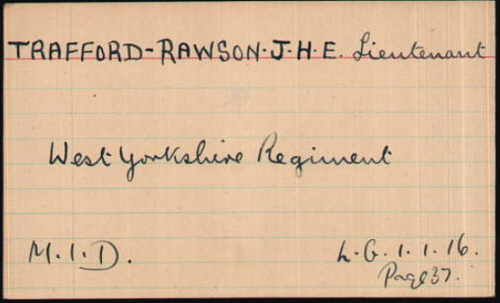 TRAFFORD-RAWSON·J·H·E. Lieutenant
West Yorkshire Regiment
M.I.D. L.G. 1.1.16.
Page 37.